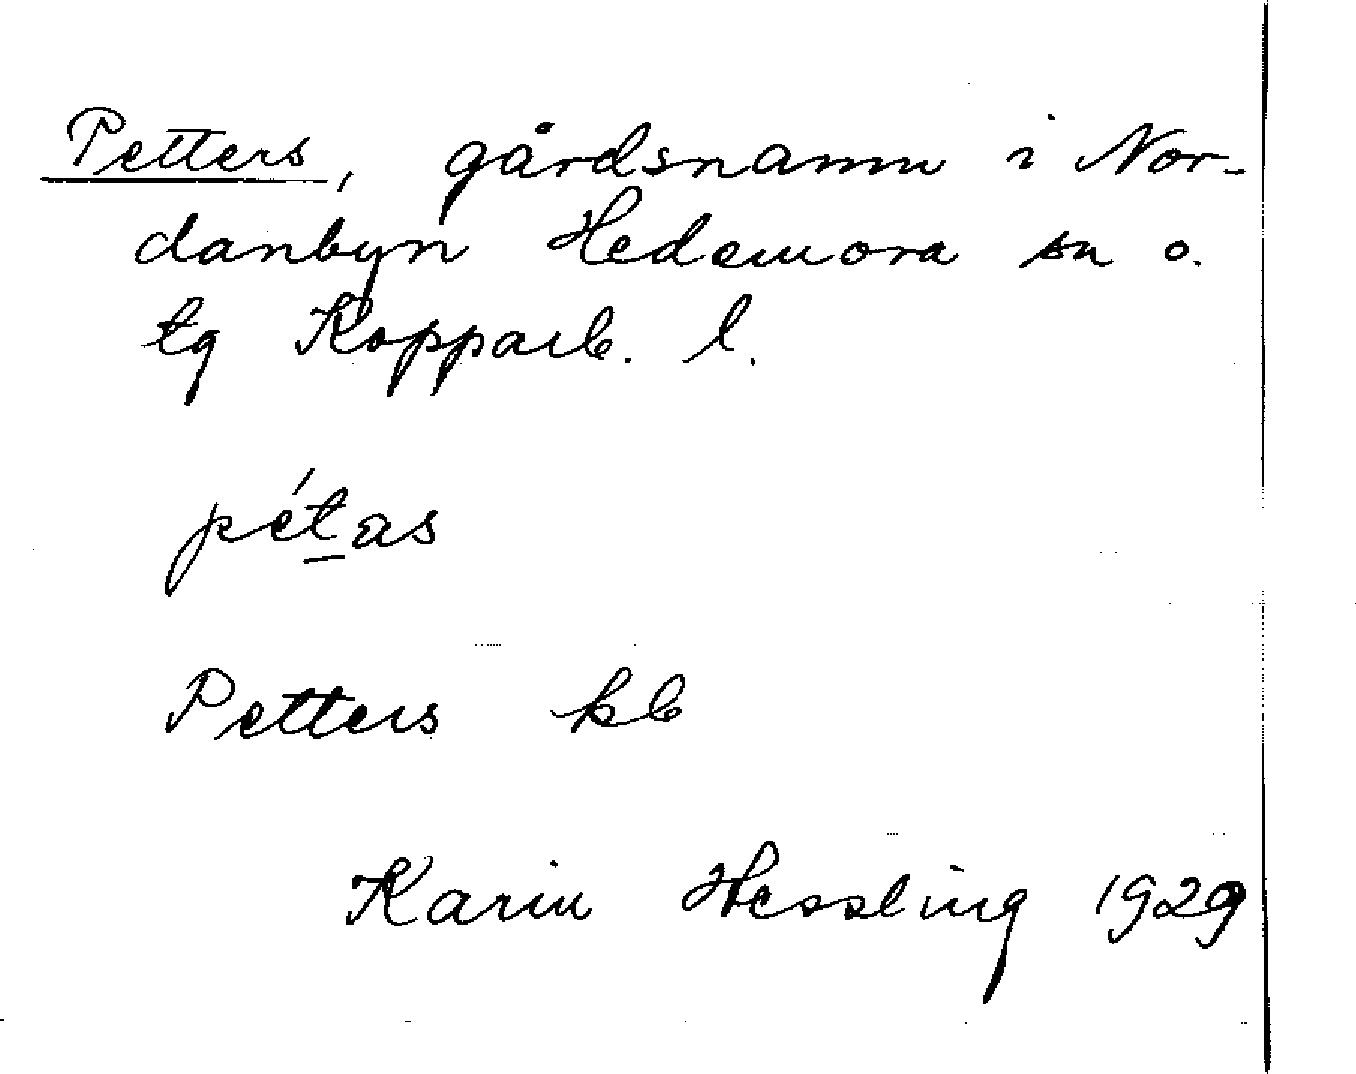 Petters, gårdsnamn i Nor-
danbyn Hedemora sn o.
tg Kopparb. l.
pét̲as
Petters kb
Karin Hessling 1929